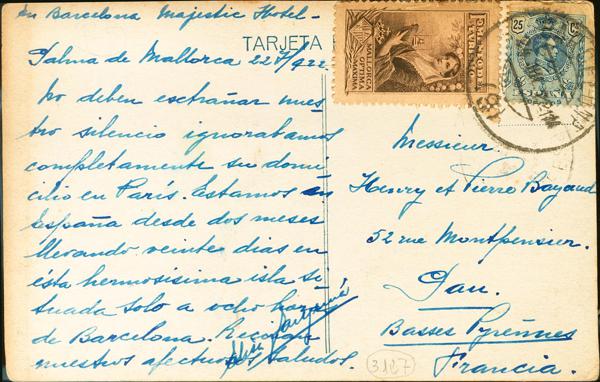 en Barcelona Majestic Hotel-
TARJETA
Palma de Mallorca 22 7/922
No deben extrañar nues
tro silencio ignorabamos
completamente su domi
cilio en París. Estamos en
España desde dos meses
llevando veinte dias en
ésta hermosisima isla si
tuada solo a ocho horas
de Barcelona. Reciban
nuestros afectuosos saludos.
MALLORCA
OPTIMA
MAXIMA
25 Cs
ESPAÑA
Messieur.
Henry et Pierre Bayaud
52 rue Montpensier.
Pau.
Basses Pyrénnes
Francia.
3127